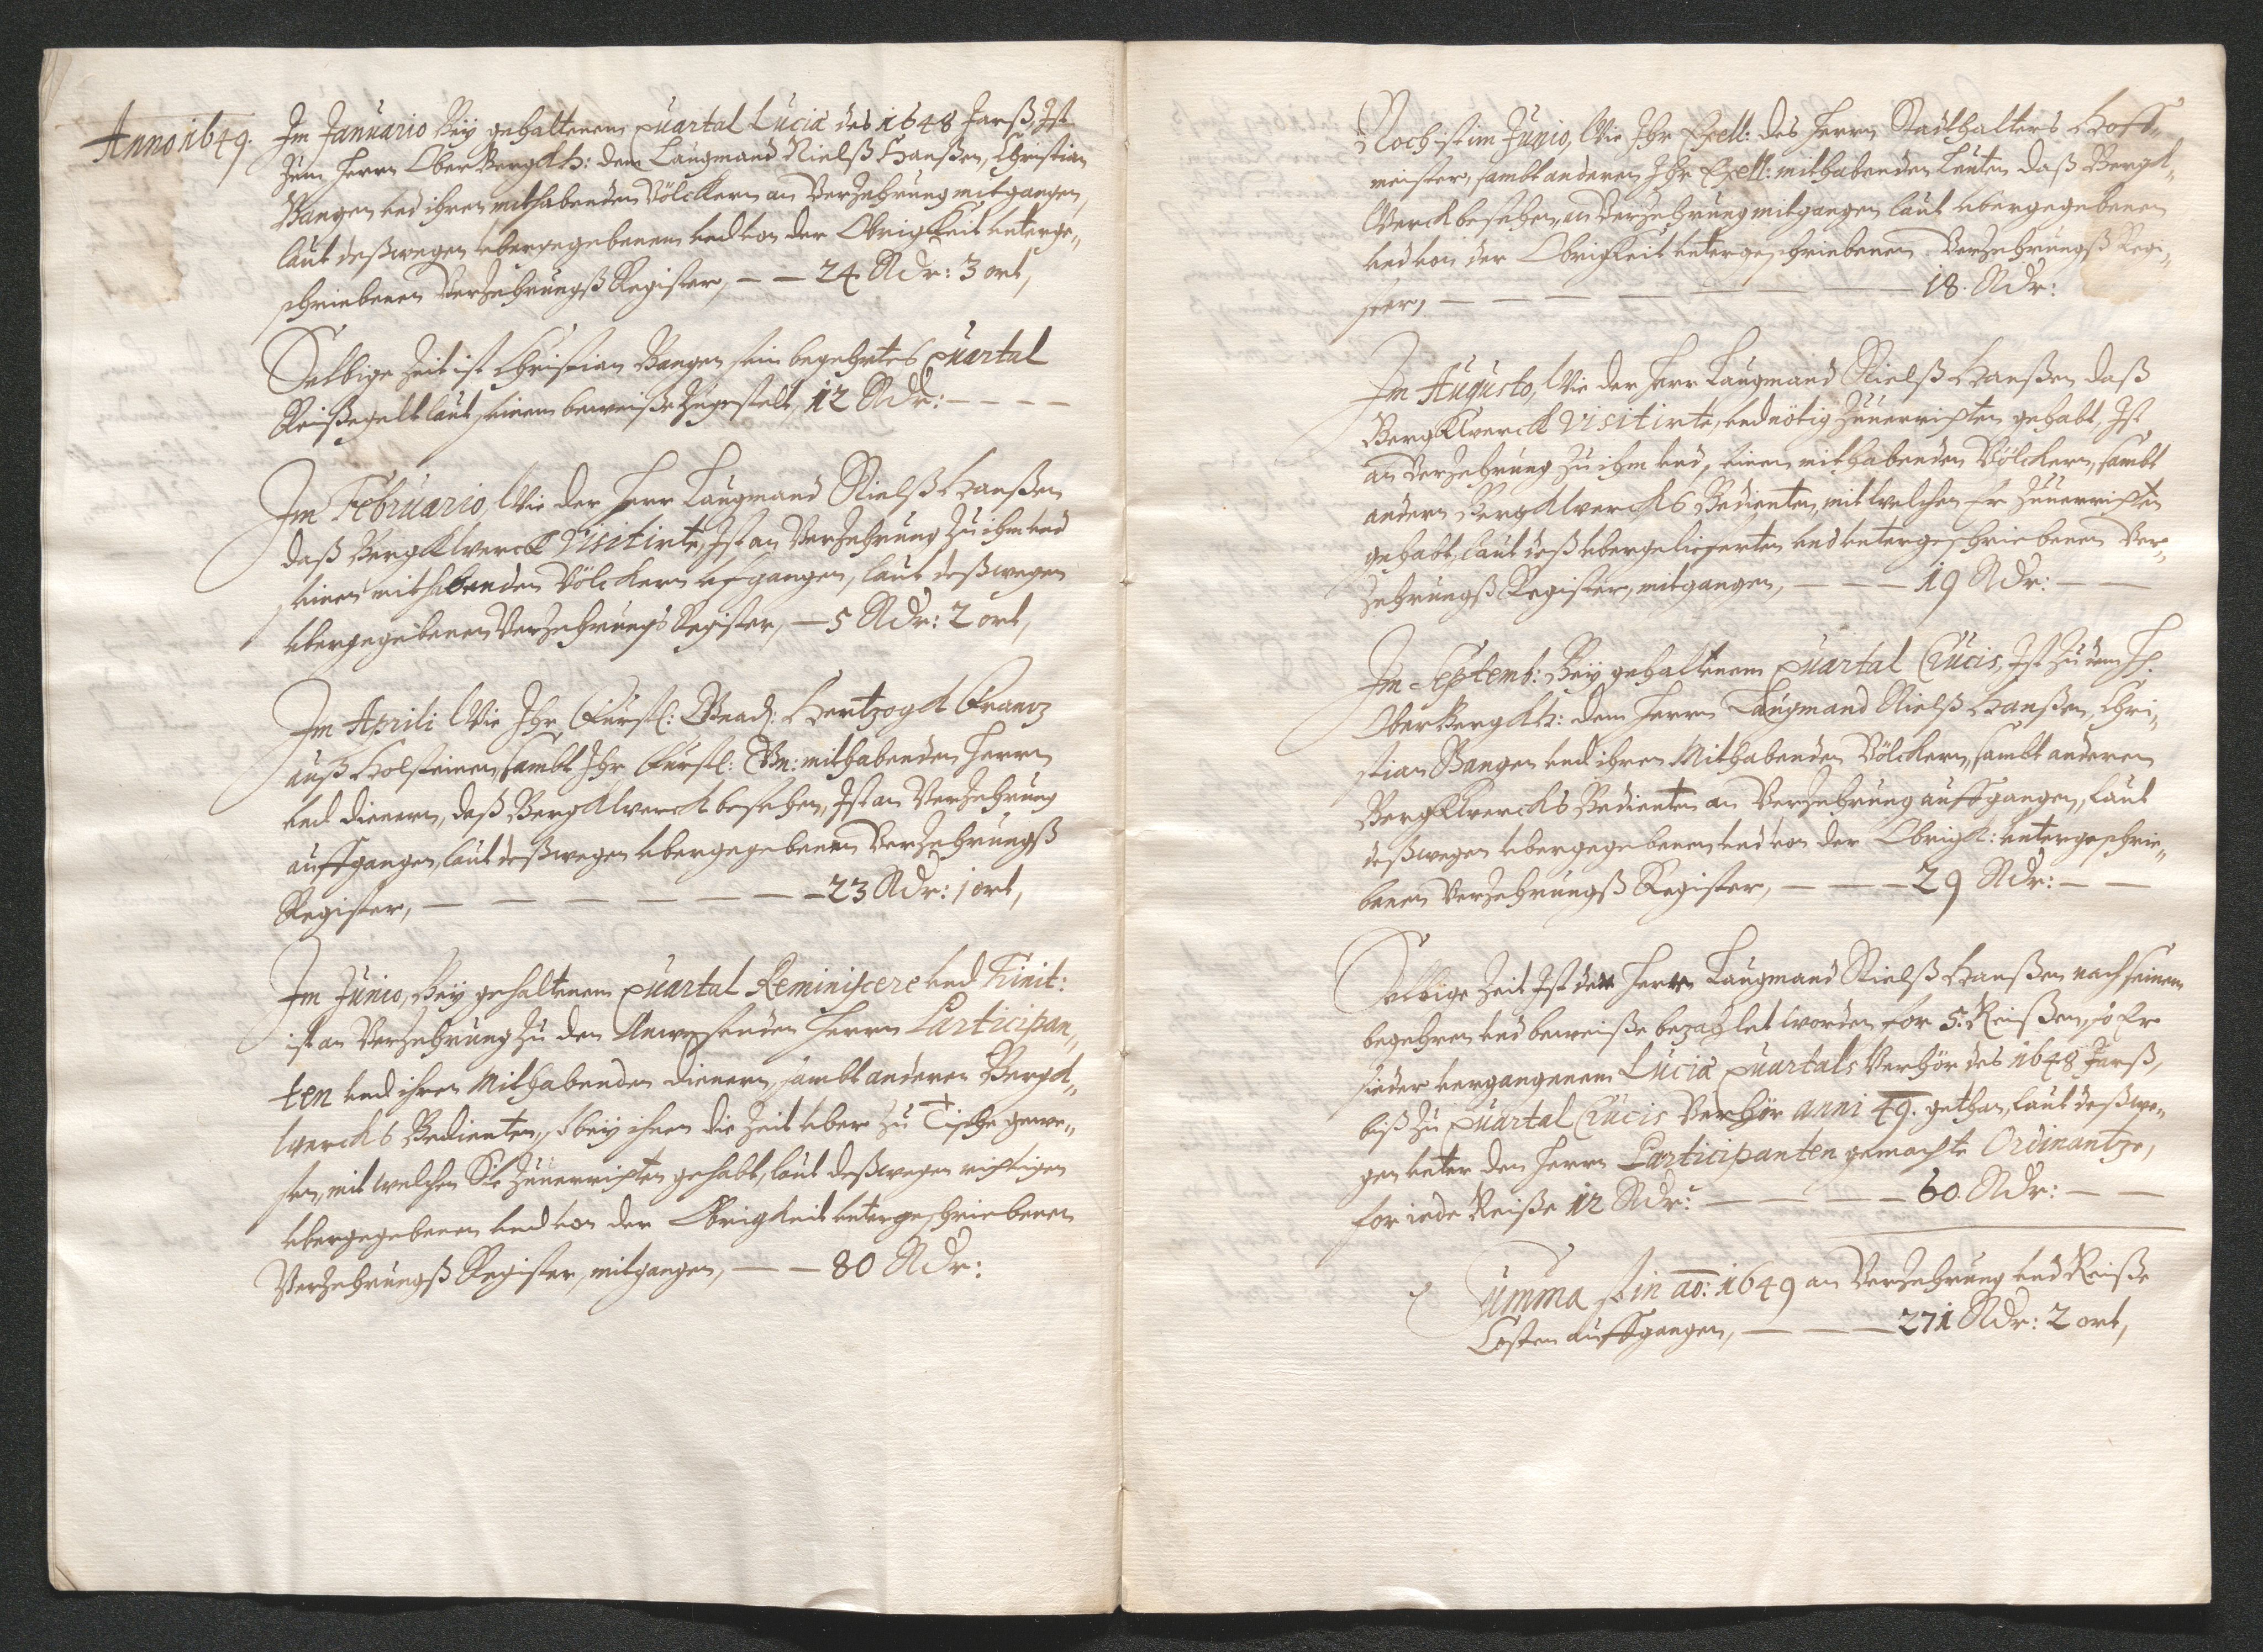 Anno 1649. Im Januario Bey gehaltenem Quartal Luciæ des 1648 Jarß, Ist
Zum Herrn OberBergkh: dem Laugmand Nielß Hanßen, Christian
Bangen und ihren mithabenden Völckern an Verzehrung mitgangen,
laut deßwegen ubergegebenem und von der Obrigkeit unterge„
schriebenen Verzehrungß Register, — — 24 Rdr: 3 ort,
Selbige Zeit ist Christian Bangen sein begehrtes Quartal
Reißegelt laut seinem beweiße Zugestelt, 12 Rdr: — — — —
Im Februario, Wie der Herr Laugmand Nielß Hanßen
daß Bergkwerck Visitirte, Ist an Verzehrung Zu ihm und
seinen mithabenden Völckern ufgangen, laut deßwegen
ubergegebenen Verzehrungs Register, — 5 Rdr: 2 ort,
Im Aprili Wie Ihr Fürstl: Gnad: Hertzogk Frantz
auß Holsteinen, sambt Ihr Fürstl: Gn: mithabenden Herrn
und dienern, daß Bergkwerck besehen, Ist an Verzehrung
auffgangen, laut deßwegen ubergegebenen Verzehrungß
Register, — — — — — — — 23 Rdr: 1 ort,
Im Junio, Bey gehaltenem Quartal Reminiscere und Trinit:
ist an Verzehrung Zu den Anwesenden Herrn Participan„
ten und ihren Mithabenden dienern, sambt anderen Bergk„
wercks Bedienten, so bey ihnen die Zeit uber Zu Tische gewe„
sen, mit welchen Sie Zuverrichten gehabt, laut deßwegen richtigen
ubergegebenen und von der Obrigkeit untergeschriebenen
Verzehrungß Register, mitgangen, — — 80 Rdr:
Noch ist im Junio, Wie Ihr Exell: des Herrn Stadthalters Hoff„
meister, sambt anderen Ihr Exell: mithabenden Leuten daß Bergk„
Werck besehen, an Verzehrung mitgangen laut ubergegebenen
und von der Obrigkeit untergeschriebenen Verzehrungß Regi„
ster, — — — — — — — 18. Rdr:
Im Augusto, Wie der Herr Laugmand Nielß Hanßen daß
Bergkwerck Visitirte, und nötig Zuverrichten gehabt, Ist
an Verzehrung Zu ihm und seinen mithabenden Völckern, sambt
andern Bergkwercks Bedienten, mit welchen Er Zuverrichten
gehabt, laut deß ubergelieferten und untergeschriebenen Ver„
zehrungß Register, mitgangen, — — — 19 Rdr: — —
Im Septemb: Bey gehaltenem Quartal Crucis, Ist Zu dem H:
OberBergkh: dem Herrn Laugmand Nielß Hanßen, Chri„
stian Bangen und ihren Mithabenden Völckern, sambt anderen
Bergkwercks Bedienten an Verzehrung auffgangen, laut
deßwegen ubergegebenen und von der Obrigk: untergeschrie„
benen Verzehrungß Register, — — — 29 Rdr: — —
Selbige Zeit Ist dem Herrn Laugmand Nielß Hanßen nach seinem
begehren und beweiße bezahlet worden for 5. Reißen, so Er
sieder vergangenem Luciæ Quartals Verhör des 1648 Jarß,
biß Zu Quartal Crucis Verhör anni 49. gethan, laut deßwe„
gen unter den Herrn Participanten gemachte Ordinantze,
for iede Reiße 12 Rdr: — — — — 60. Rdr: — —
Summa so in ao: 1649 an Verzehrung und Reiße
Costen auffgangen, — — — 271 Rdr: 2 ort,